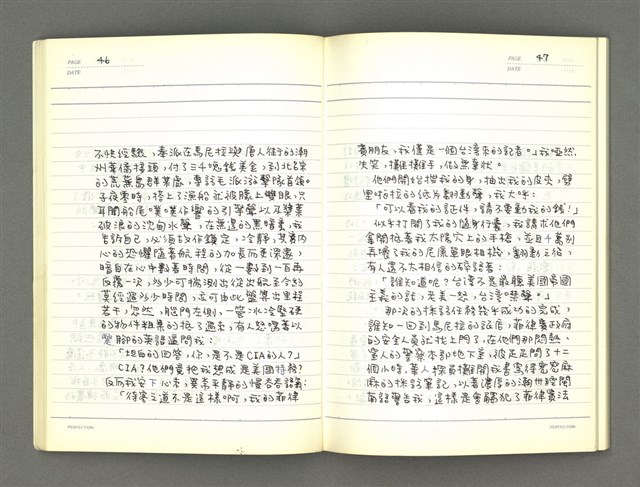 PAGE 46
DATE
不快經驗，奉派在馬尼拉與唐人街的潮
州華僑接頭，付了三千塊錢美金，到北部
的高萊島群某處，專訪毛派游擊隊首領。
子夜零時，搭上了漁船就被矇上雙眼，只
耳聞船尾噗噗作響的引擎聲以及槳葉
破浪的沈甸水聲，在無邊的黑暗裏，我
告訴自己，必須故作鎮定，冷靜，其實內
心的恐懼隨著航程的加長而深邃，
暗自在心中數著時間，從一數到一百再
反覆一次，多少可揣測出從出航至今約
莫經過多少時間，亦可由此盤算出里程
若干，忽然，艙門左側，一管冰冷堅硬
的物件粗暴的抵了過來，有人怒嚷著以
蹩腳的英語逼問我：
「坦白的回答，你，是不是CIA的人？」
CIA？他們竟把我想成是美國特務？
反而我安下心來，異常平靜的慢吞吞說：
「待客之道不是這樣啊，我的菲律
PERFECTION
PAGE 47
DATE
賓朋友，我僅是一個台灣來的記者。」我啞然
失笑，攤攤手，做無辜狀。
他們開始搜我的身，抽出我的皮夾，劈
里啪拉的紙片翻動聲，我大咪：
「可以看我的証件，請不要動我的錢！」
似乎打開了我的隨身行囊，我請求他們
拿開抵著我太陽穴上的手槍，並且千萬別
弄壞了我的尼康單眼相機，翻動之後，
有人還不太相信的碎語著：
「誰知道呢？台灣不是最聽美國帝國
主義的話，是美一怒，台灣禁聲。」
那次的採訪任務幾乎成功的完成，
誰知一回到馬尼拉的飯店，菲律賓政府
的安全人員就找上門了，在他們那悶熱、
窒人的警察本部地下室，被足足問了十二
個小時，華人探員攤開我書寫得密密麻
麻的採訪筆記，以著濃厚的潮州腔閩
南語警告我，這樣是會觸犯了菲律賓法
PERFECTION